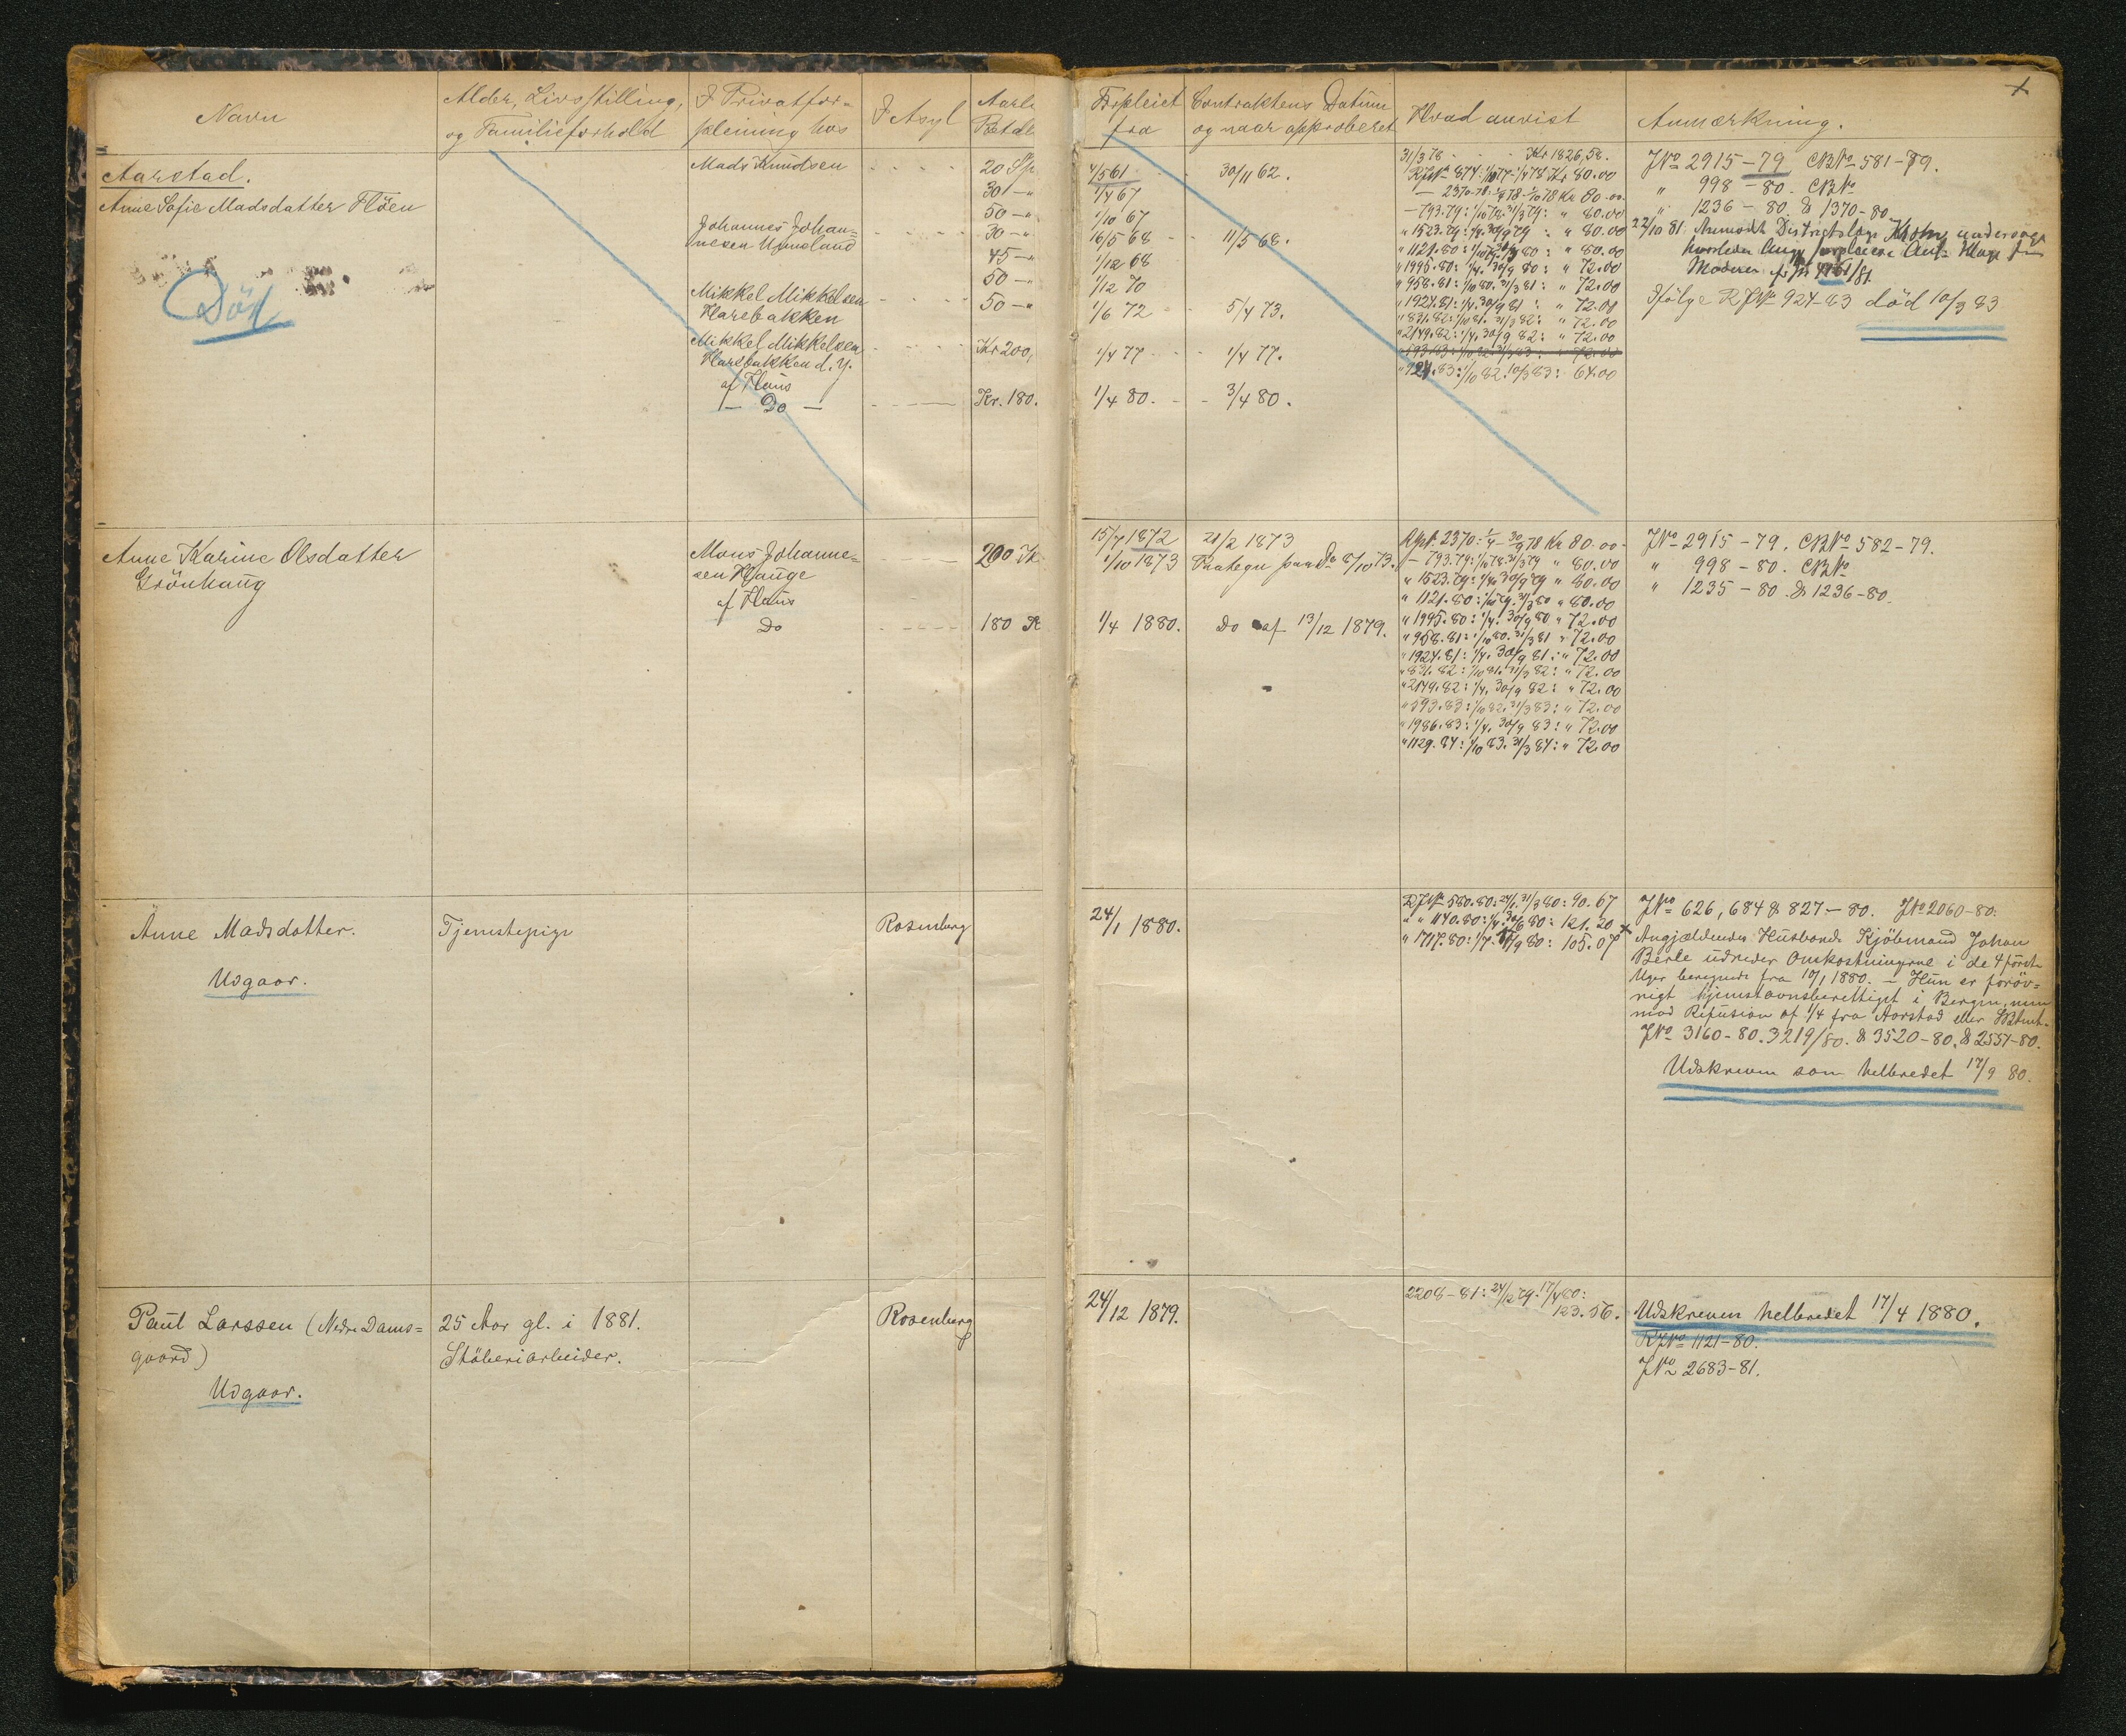 Navn
Alder, Livsstilling,
og Familieforhold
I Privatfor-
pleining hos
I Asyl
Aarl
Betal
Forpleiet
fra
Contraktens Datum
og naar approberet
Hvad anvist
Anmærkning.
Aarstad.
Anne Sofie Madsdatter Flöen
Död
Mads Knudsen
Johannes Johan-
nesen
Mikkel Mikkelsen
Harebakken
Mikkel Mikkelsen
Harebakken d. y.
af Haus
— Do —
20 Sp
30 — "
50 — "
30 — "
45 — "
50 — "
50 — "
Kr 200,
Kr. 180.
4/5 61
1/4 67
1/10 67
16/5 68
1/12 68
1/12 70
1/6 72
1/4 77
1/4 80.
30/11 62.
11/5 68.
5/4 73.
1/4 77.
3/4 80.
31/3 78 Kr 1826,58.
" 1523.79: 1/4. 30/9 79 : " 80.00
" 1121.80: 1/10 79. 31/3 80 : " 80.00
" 1995.80: 1/4. 30/9 80 : " 72.00
" 958.81: 1/10 80. 31/3 81 : " 72.00
" 1924.81: 1/4. 30/9 81 : " 72.00
" 831.82: 1/10 81. 31/3 82: " 72.00
" 2149.82: 1/4. 30/9 82: " 72.00
" 924.83: 1/10 82. 10/3 83: 64.00
JNo 2915 – 79 CBNo 581 – 79.
" 998 – 80. CBNo
" 1236 – 80 & 1370 – 80
22/10 81 Anmodet Districtslæge
Ifölge RJNo 924-83 död 10/3 83
Anne Karine Olsdatter
Grönhaug
Mons Johanne-
sen Hauge
af Haus
Do
200 K
180 K
15/7 1872
1/10 1873
1/4 1880.
21/2 1873
Do af 13/12 1879.
– 793.79: 1/10 78. 31/3 79 " 80.00
" 1523.79: 1/4. 30/9 79 " 80.00
" 1121.80: 1/10 79. 31/3 80 " 80.00
" 1995.80: 1/4. 30/9 80 " 72.00
" 958.81: 1/10 80. 31/3 81 " 72.00
" 1924.81: 1/4. 30/9 81: " 72.00
" 831.82: 1/10 81. 31/3 82: " 72.00
" 2149.82: 1/4. 30/9 82: " 72.00
" 893.83: 1/10 82. 31/3 83: " 72.00
" 1986.83: 1/4. 30/9 83: " 72.00
" 1129.84: 1/10 83. 31/3 84: " 72.00
JNo 2915 – 79. CBNo 582 – 79.
" 998 – 80. CBNo
" 1235 – 80. & 1236 – 80.
Anne Madsdatter.
Udgaar.
Tjenestepige
Rosenberg
24/1 1880.
RJNo 580.80: 24/1. 31/3 80: 90.67
" " 1140.80: 1/4. 30/6 80: 121.20
" 1717.80: 1/7. 17/9 80: 105.07
JNo 626, 684 & 827 – 80. JNo 2060 – 80.
× Angjældendes Husbond Kjöbmand Johan
Berle udreder Omkostningerne i de 4 förste
Uger beregnede fra 10/1 1880. – Hun er foröv-
rigt hjemstavnsberettiget i Bergen, men
mod Refusion af 1/4 fra Aarstad eller
JNo 3160 – 80. 3219/80. & 3520 – 80. & 2557 – 80.
Udskreven som helbredet 17/9 80.
Paul Larssen (Nedre Dams-
gaard)
Udgaar.
25 Aar gl. i 1881.
Stöberiarbeider.
Rosenberg
24/12 1879.
2208 – 81: 24/12 79. 17/4 80:
123.56.
Udskreven helbredet 17/4 1880.
RJNo 1121 – 80.
JNo 2683 – 81.